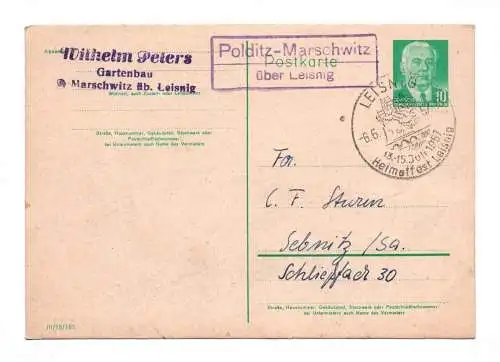 Wilhelm Peters
Gartenbau
Marschwitz üb. Leisnig
Polditz-Marschwitz
über Leisnig
Postkarte
10
LEISNIG
-6.6.
13.-15. Juli 1957
Heimatfest Leisnig
Straße, Hausnummer, Gebäudeteil, Stockwerk oder Postschließfachnummer
bei Untermietern auch Name des Vermieters
Fa.
C. F. Sturm
Sebnitz/Sa.
Schließfach 30
Straße, Hausnummer, Gebäudeteil, Stockwerk oder Postschließfachnummer
bei Untermietern auch Name des Vermieters
III/18/185